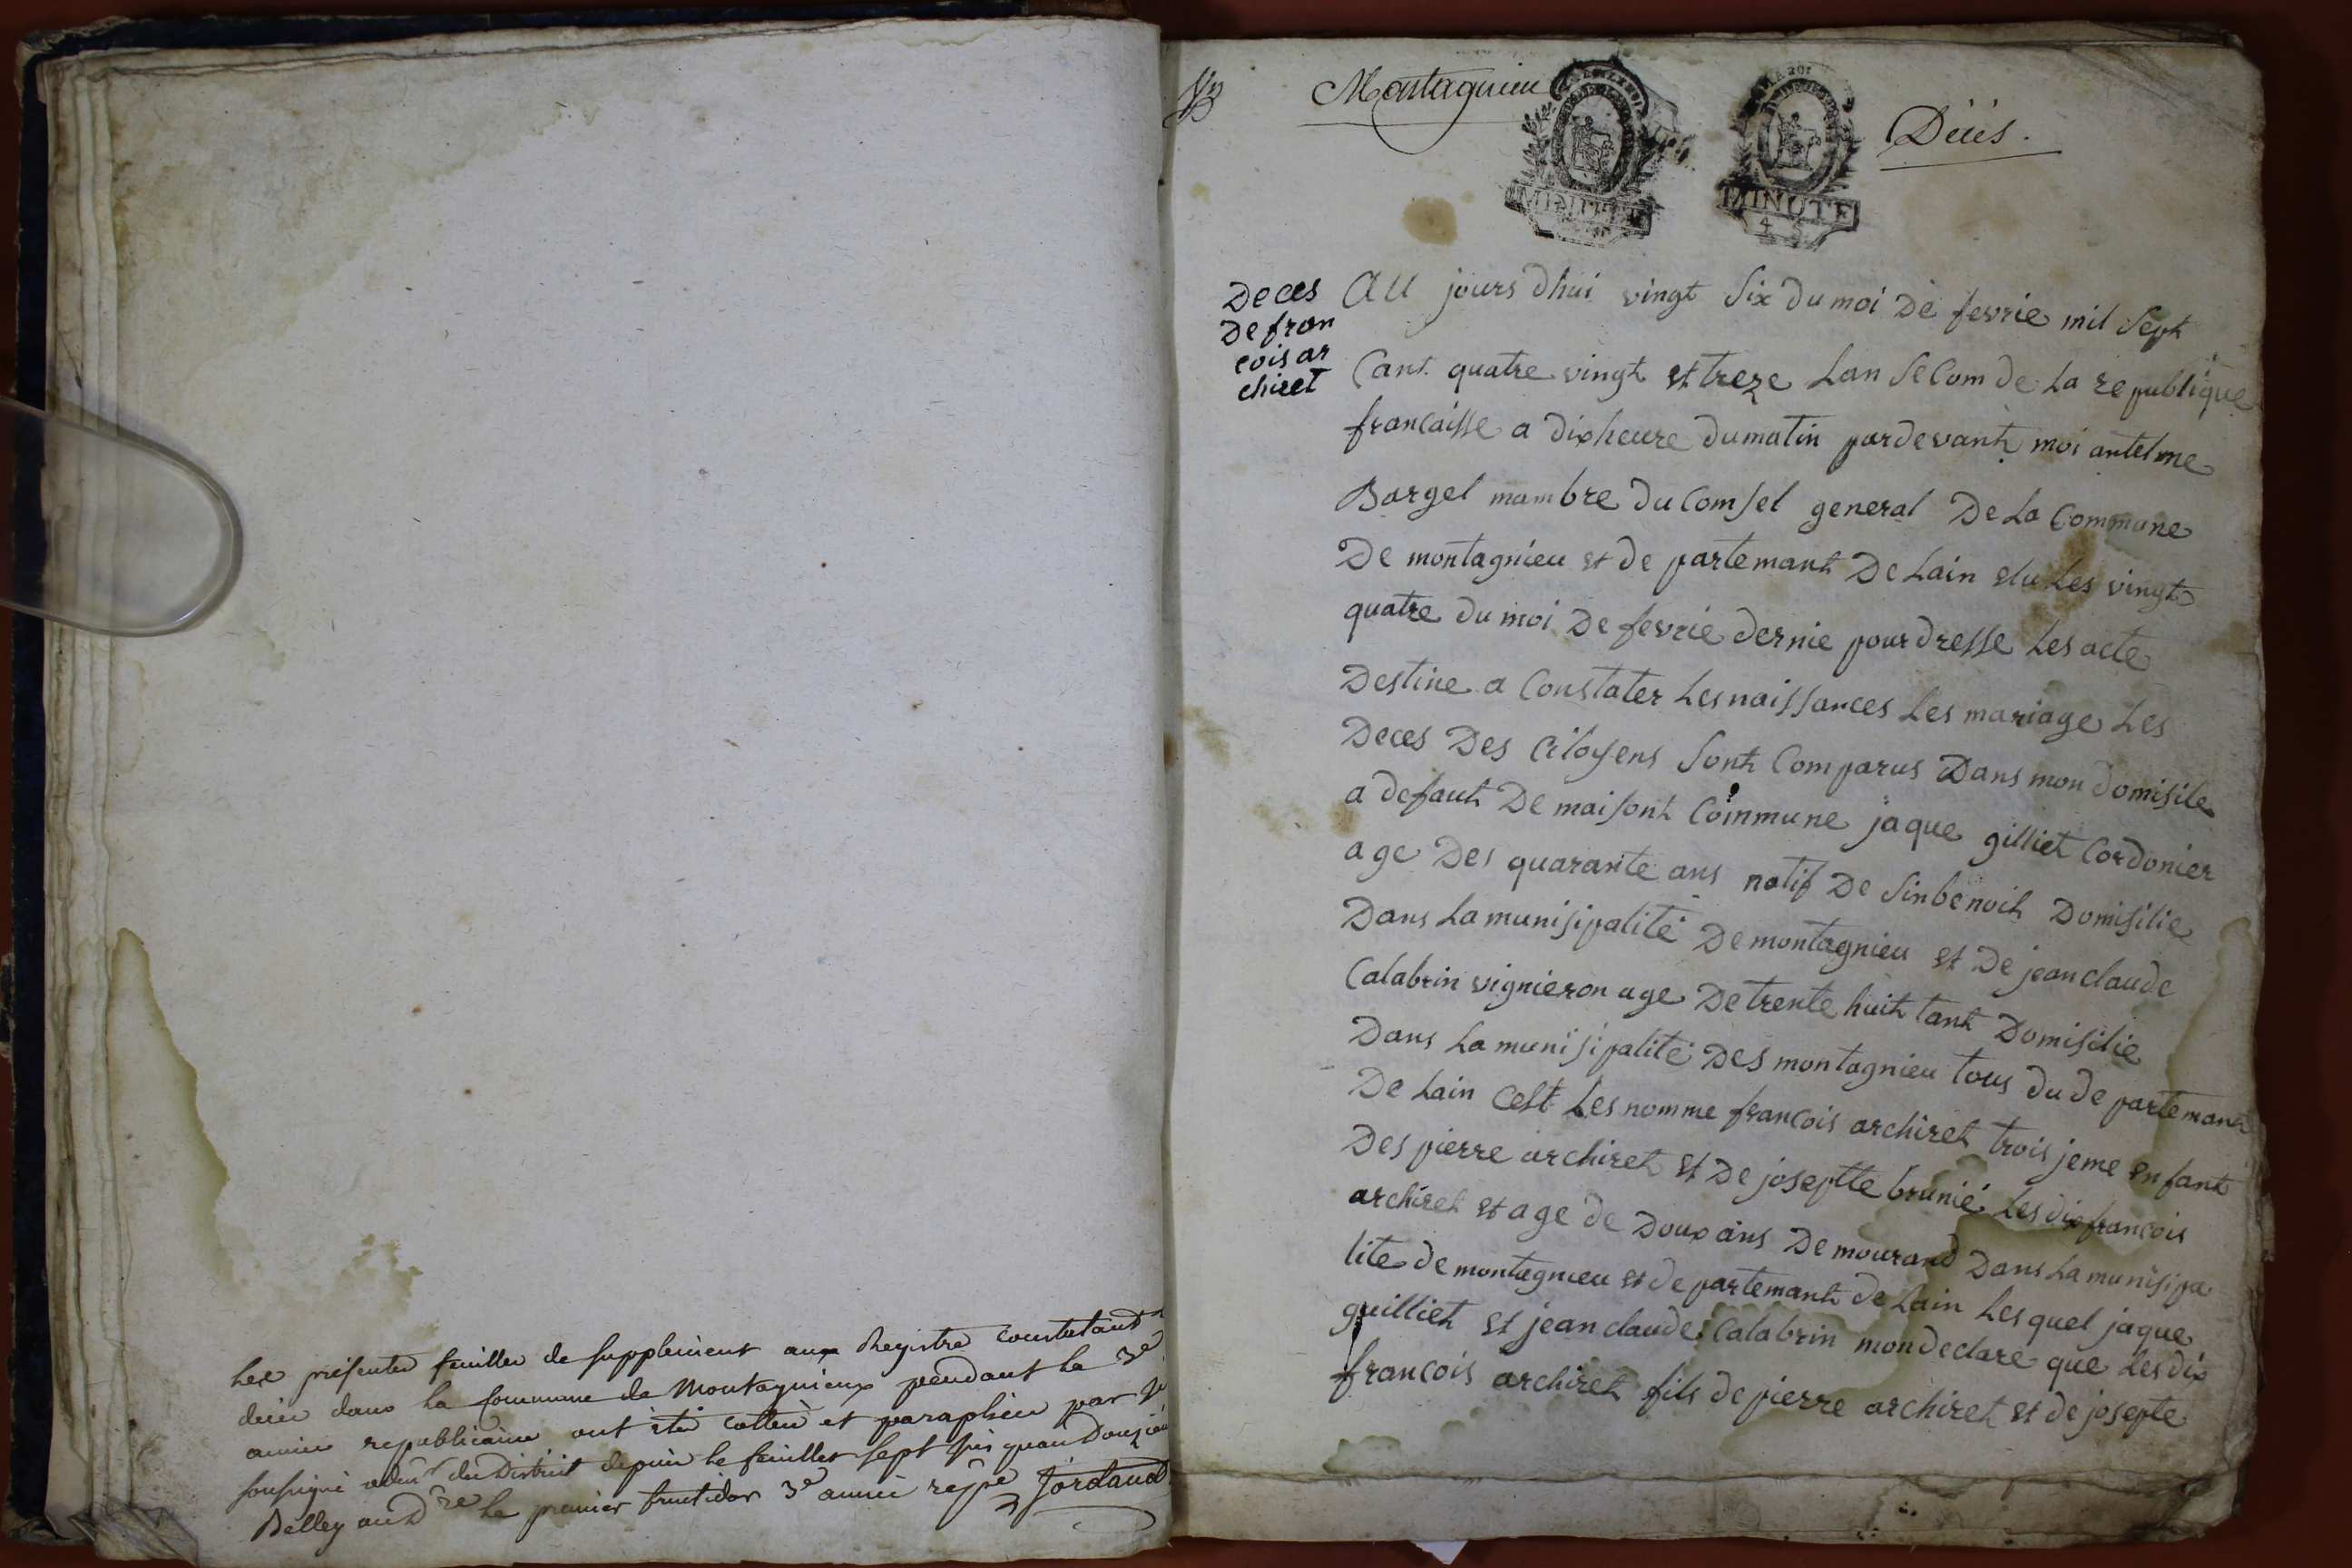 Les présentes feuilles de supplément aux Registre constatant les
décès dans la Commune de Montagnieux pendant la 3e
année républicaine ont été cottées et paraphées par
soussigné adm.r du District depuis le feuillet sept jus qu'au Douzième
Belley au D.re le premier fructidor 3e année rep.e Jordand
Montagnieu
Décès.
MINUTE
MINUTE
4 S
Deces
De fran
cois ar
chiret
Au jours dhui vingt Six du moi De fevrie mil Sept
Cant quatre vingt et treze Lan Secom de La republique
francaisse a dix heure du matin par devant moi antelme
Bargel mambre du Comsel general De La Commune
De montagnieu et de partemant De Lain elu Les vingt
quatre du moi De fevrie dernie pour dresse Les acte
Destine a Constater Les naissances Les mariage Les
Deces Des Citoyens Sont Comparus Dans mon domisile
a defaut De maisont Commune jaque gilliet Cordonier
age Des quarante ans natif De Sinbenoit Domisilie
Dans La munisipalité De montagnieu et De jean claude
Calabrin vignieron age De trente huit tant Domisilie
Dans La munisipalité Des montagnieu tous du de partemant
De Lain Cest Les nomme francois archiret trois jeme enfant
Des pierre archiret et De joseptte brunié Les dix francois
archiret et age de Doux ans De mourand Dans La munisipa
lite de montagnieu et de partemant de Lain Les quel jaque
guilliet et jean claude Calabrin mon declare que Les dix
francois archiret fils de pierre archiret et de josepte